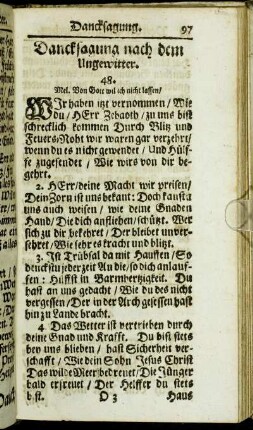 Dancksagung. 97
Dancksagung nach dem
Ungewitter.
48.
Mel. Von Gott wil ich nicht lassen/
WIr haben itzt vernommen/ Wie
du/ HErr Zebaoth/ zu uns bist
schrecklich kommen Durch Blitz und
Feuers-Noht wir waren gar verzehrt/
wenn du es nicht gewendet/ Und Hülf-
fe zugesendet/ Wie wirs von dir be-
gehrt.
2. HErr/ deine Macht wir preisen/
Dein Zorn ist uns bekant: Doch kanst a
uns auch weisen/ wie deine Gnaden
Hand/ Die dich anfliehen/ schützt. Wer
sich zu dir bekehrt/ Der bleibet unver-
sehret/ Wie sehr es kracht und blitzt.
3. Ist Trübsal da mit Hauffen/ So
denckstu jederzeit An die/ so dich anlauf-
fen: Hilffst in Barmhertzigkeit. Du
hast an uns gedacht/ Wie du des nicht
vergessen/ Der in der Arch gesessen hast
hin zu Lande bracht.
4 Das Wetter ist vertrieben durch
deine Gnad und Krafft. Du bist stets
bey uns blieben/ hast Sicherheit ver-
schafft/ Wie dein Sohn Jesus Christ
Das wilde Meer bedreuet/ Die Jünger
bald erfreuet/ Der Helffer du stets
bist. O 3 Haus